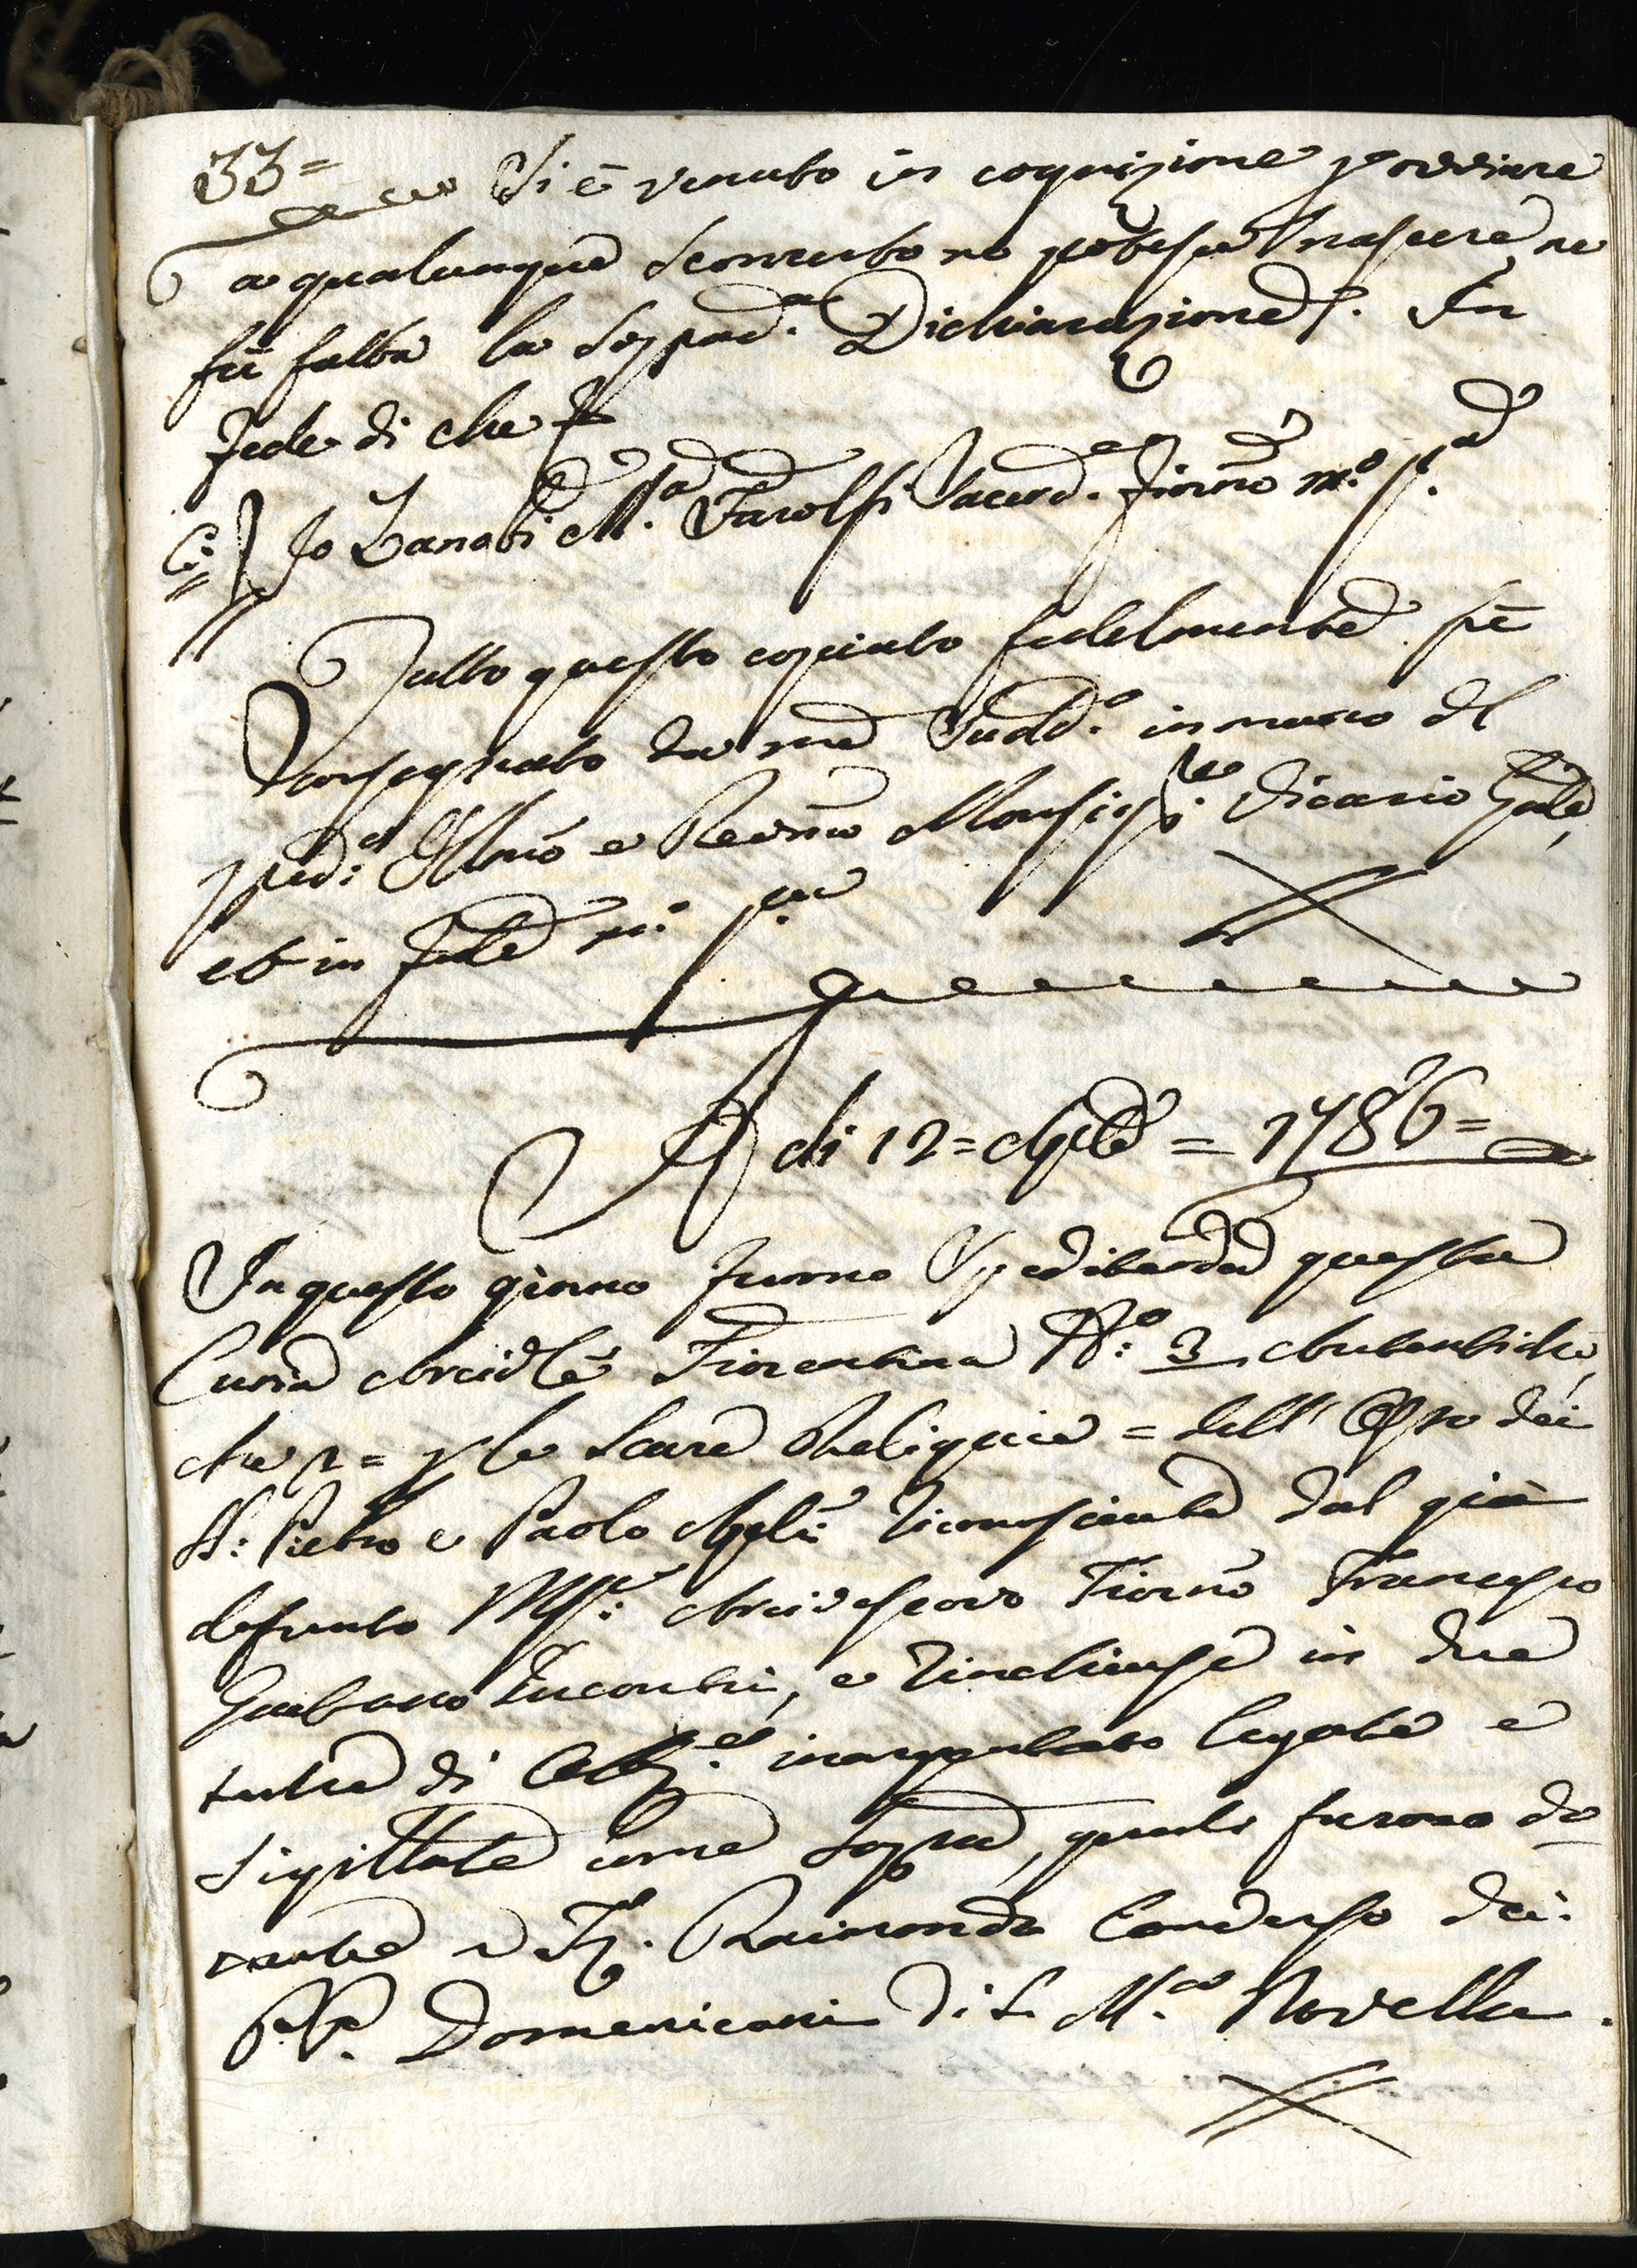 33=
Si è venuto in cognizione p ovviare
a qualunque sconcerto ne potesse nascere ne
fù fatta la sop.ad.a Dichiarazione. In
fede di che
C: Io Zanobi M.a Farolfi Sacerd.e Fiorno m.o p.a
Tutto questo copiato fedelmente fù
consegnato da me Sudd.o in mano del
pred.o Illmo e Revmo Monsig.re Vicario Gnle,
et in fede m.o p.a
A di 12= Aple = 1786=
In questo giorno furno Spedite da questa
Curia Arcivle Fiorentina N.o 3 Autentiche,
che 2= p le Sacre Reliquie = dell' Ossa dei
SS: Pietro e Paolo Apli riconosciute dal già
defunto Msr: Arcivescovo Fiorno Francesco
Gaetano Incontri, e rinchiuse in due
teche di inargentato legate e
sigillate come sopra, quali furono do
nate a Fr. Raimondo Converso dei
PP. Domenicani di S. M.a Novella.